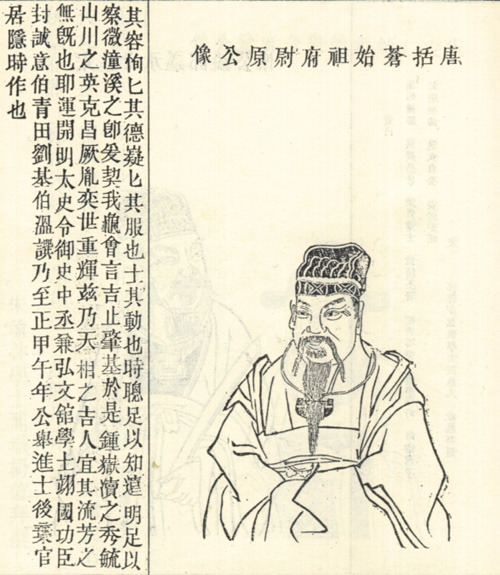 唐括蒼始祖府尉原公像
其容恂匕其德嶷匕其服也士其動也時聰足以知遠明足以
察微潼溪之卽爰契我龜會言吉止肇基於是鍾嶽瀆之秀毓
山川之英克昌厥胤奕世重輝茲乃天相之吉人宜其流芳之
無旣也耶運開明太史令御史中丞兼弘文館學士翊國功臣
封誠意伯青田劉基伯溫譔乃至正甲午年公舉進士後棄官
居隱時作也